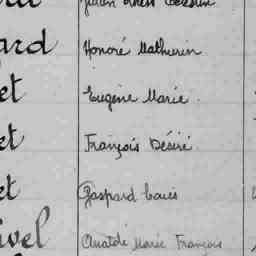 ard Honoré Mathurin
et Eugène Marie
et François Désiré
et Gaspard Louis
ivel Anatole Marie François